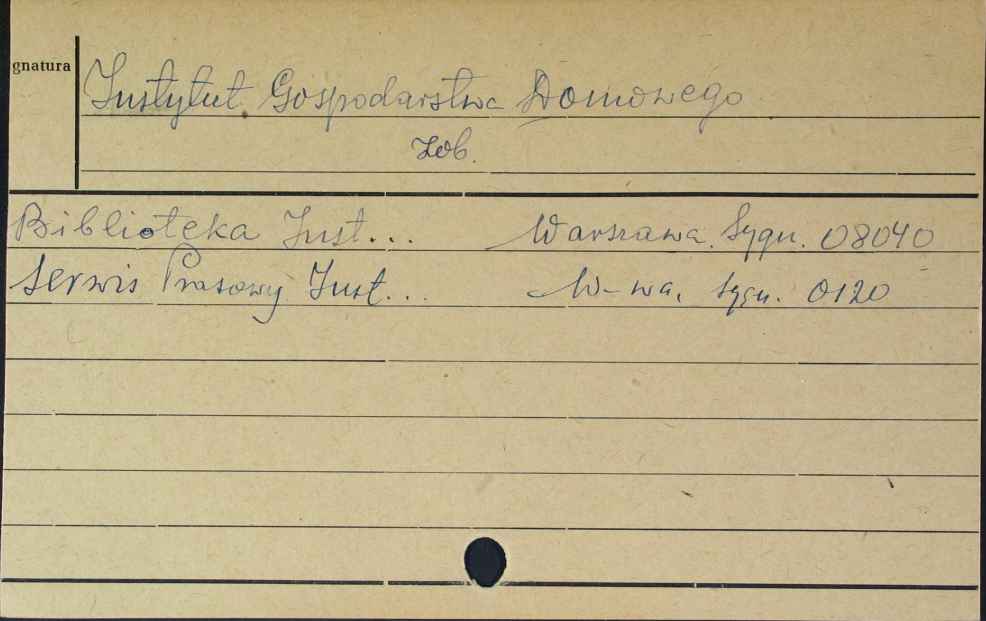 gnatura
Instytut Gospodarstwa Domowego
Zob.
Biblioteka Inst... Warszawa. Sygn. 08040
Serwis Prasowy Inst... W-wa, Sygn. 0120